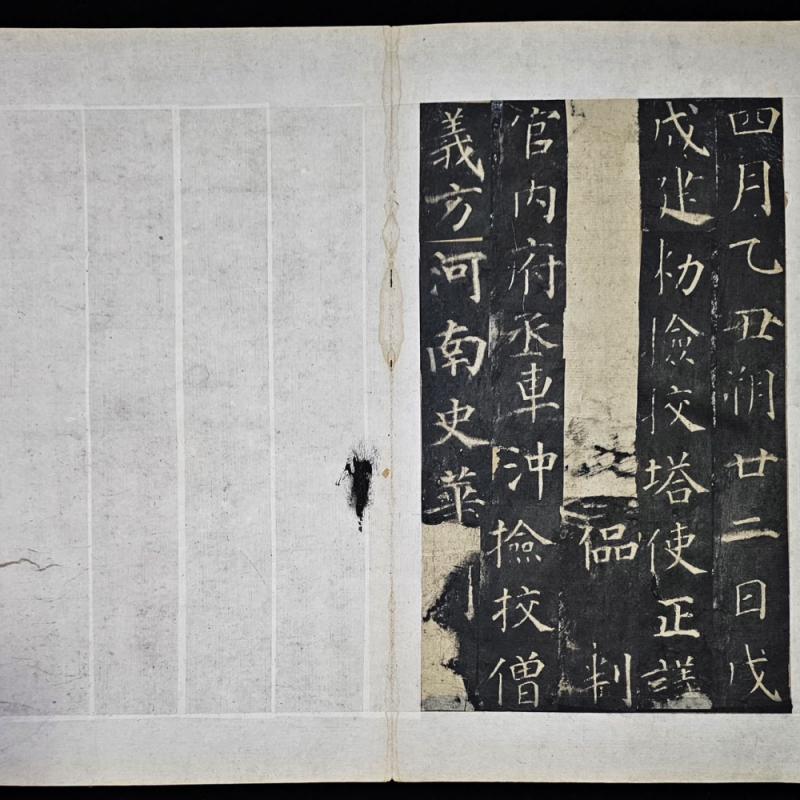 四月乙丑朔廿二日戊
戌建勅撿挍塔使正議
偘 判
官内府丞車沖撿挍僧
義方河南史華